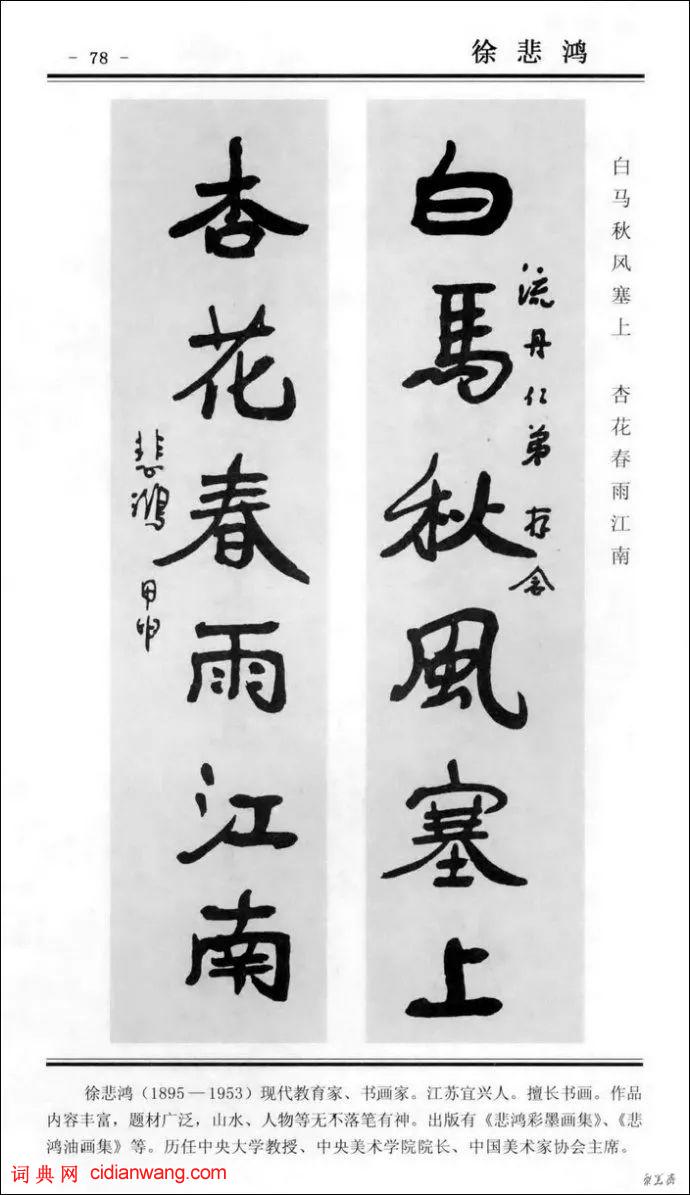 - 78 -
徐悲鸿
白马秋风塞上　杏花春雨江南
流丹仁弟存念
白馬秋風塞上
杏花春雨江南
悲鴻 甲申
徐悲鸿（1895－1953）现代教育家、书画家。江苏宜兴人。擅长书画。作品
内容丰富，题材广泛，山水、人物等无不落笔有神。出版有《悲鸿彩墨画集》、《悲
鸿油画集》等。历任中央大学教授、中央美术学院院长、中国美术家协会主席。
词典网 cidianwang.com